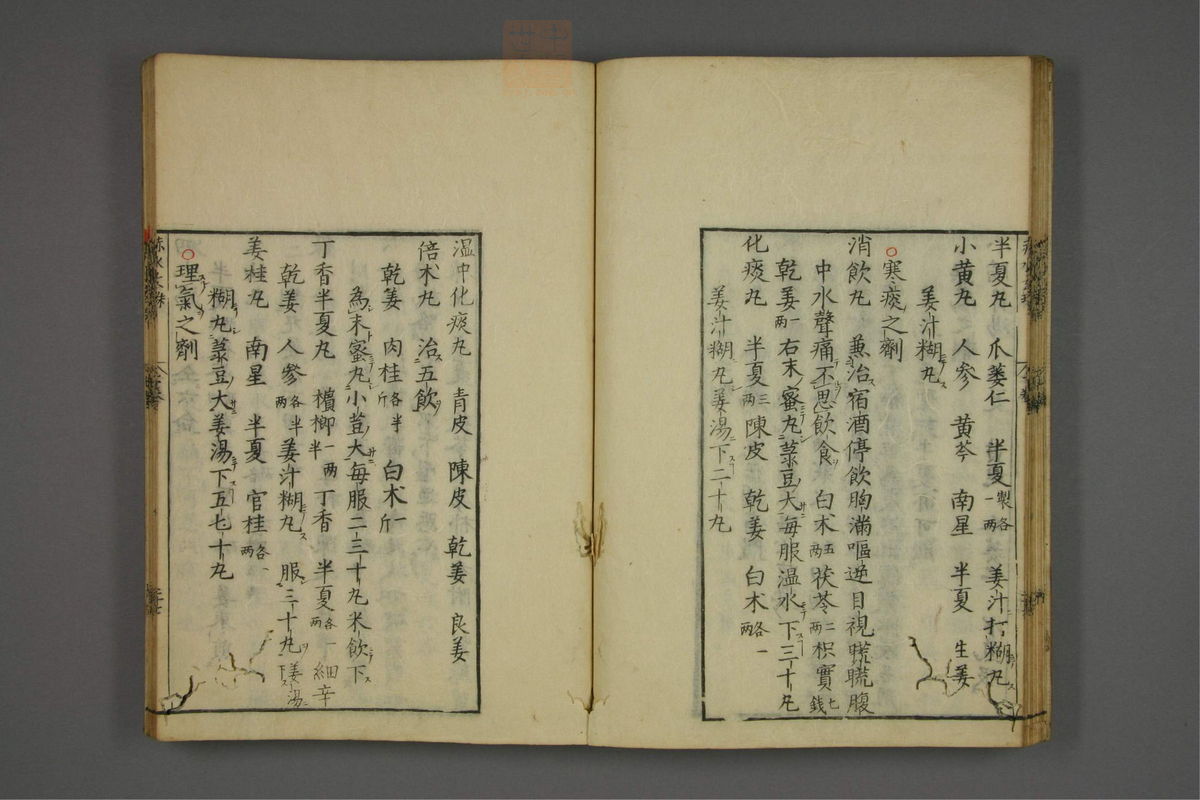 半夏丸 爪蔞仁 半夏製各一两 姜汁打糊丸
小黄丸 人参 黄芩 南星 半夏 生姜
姜汁糊丸
寒痰之劑
消飲丸 兼治宿酒停飲胸滿嘔逆目視䀮䀮腹
中水聲痛不思飲食 白朮五两 茯苓二两 枳實七錢
乾姜一两 右末蜜丸菉豆大每服温水下三十丸
化痰丸 半夏三两 陳皮 乾姜 白朮各一两
姜汁糊丸姜湯下二十丸
温中化痰丸 青皮 陳皮 乾姜 良姜
倍朮丸 治五飲
乾姜 肉桂各半斤 白朮一斤
為末蜜丸小荳大每服二三十丸米飲下
丁香半夏丸 檳榔一两半 丁香 半夏各一两 細辛
乾姜 人參各半两 姜汁糊丸 服三十丸姜湯下
姜桂丸 南星 半夏 官桂各一两
糊丸菉豆大姜湯下五七十丸
理氣之劑